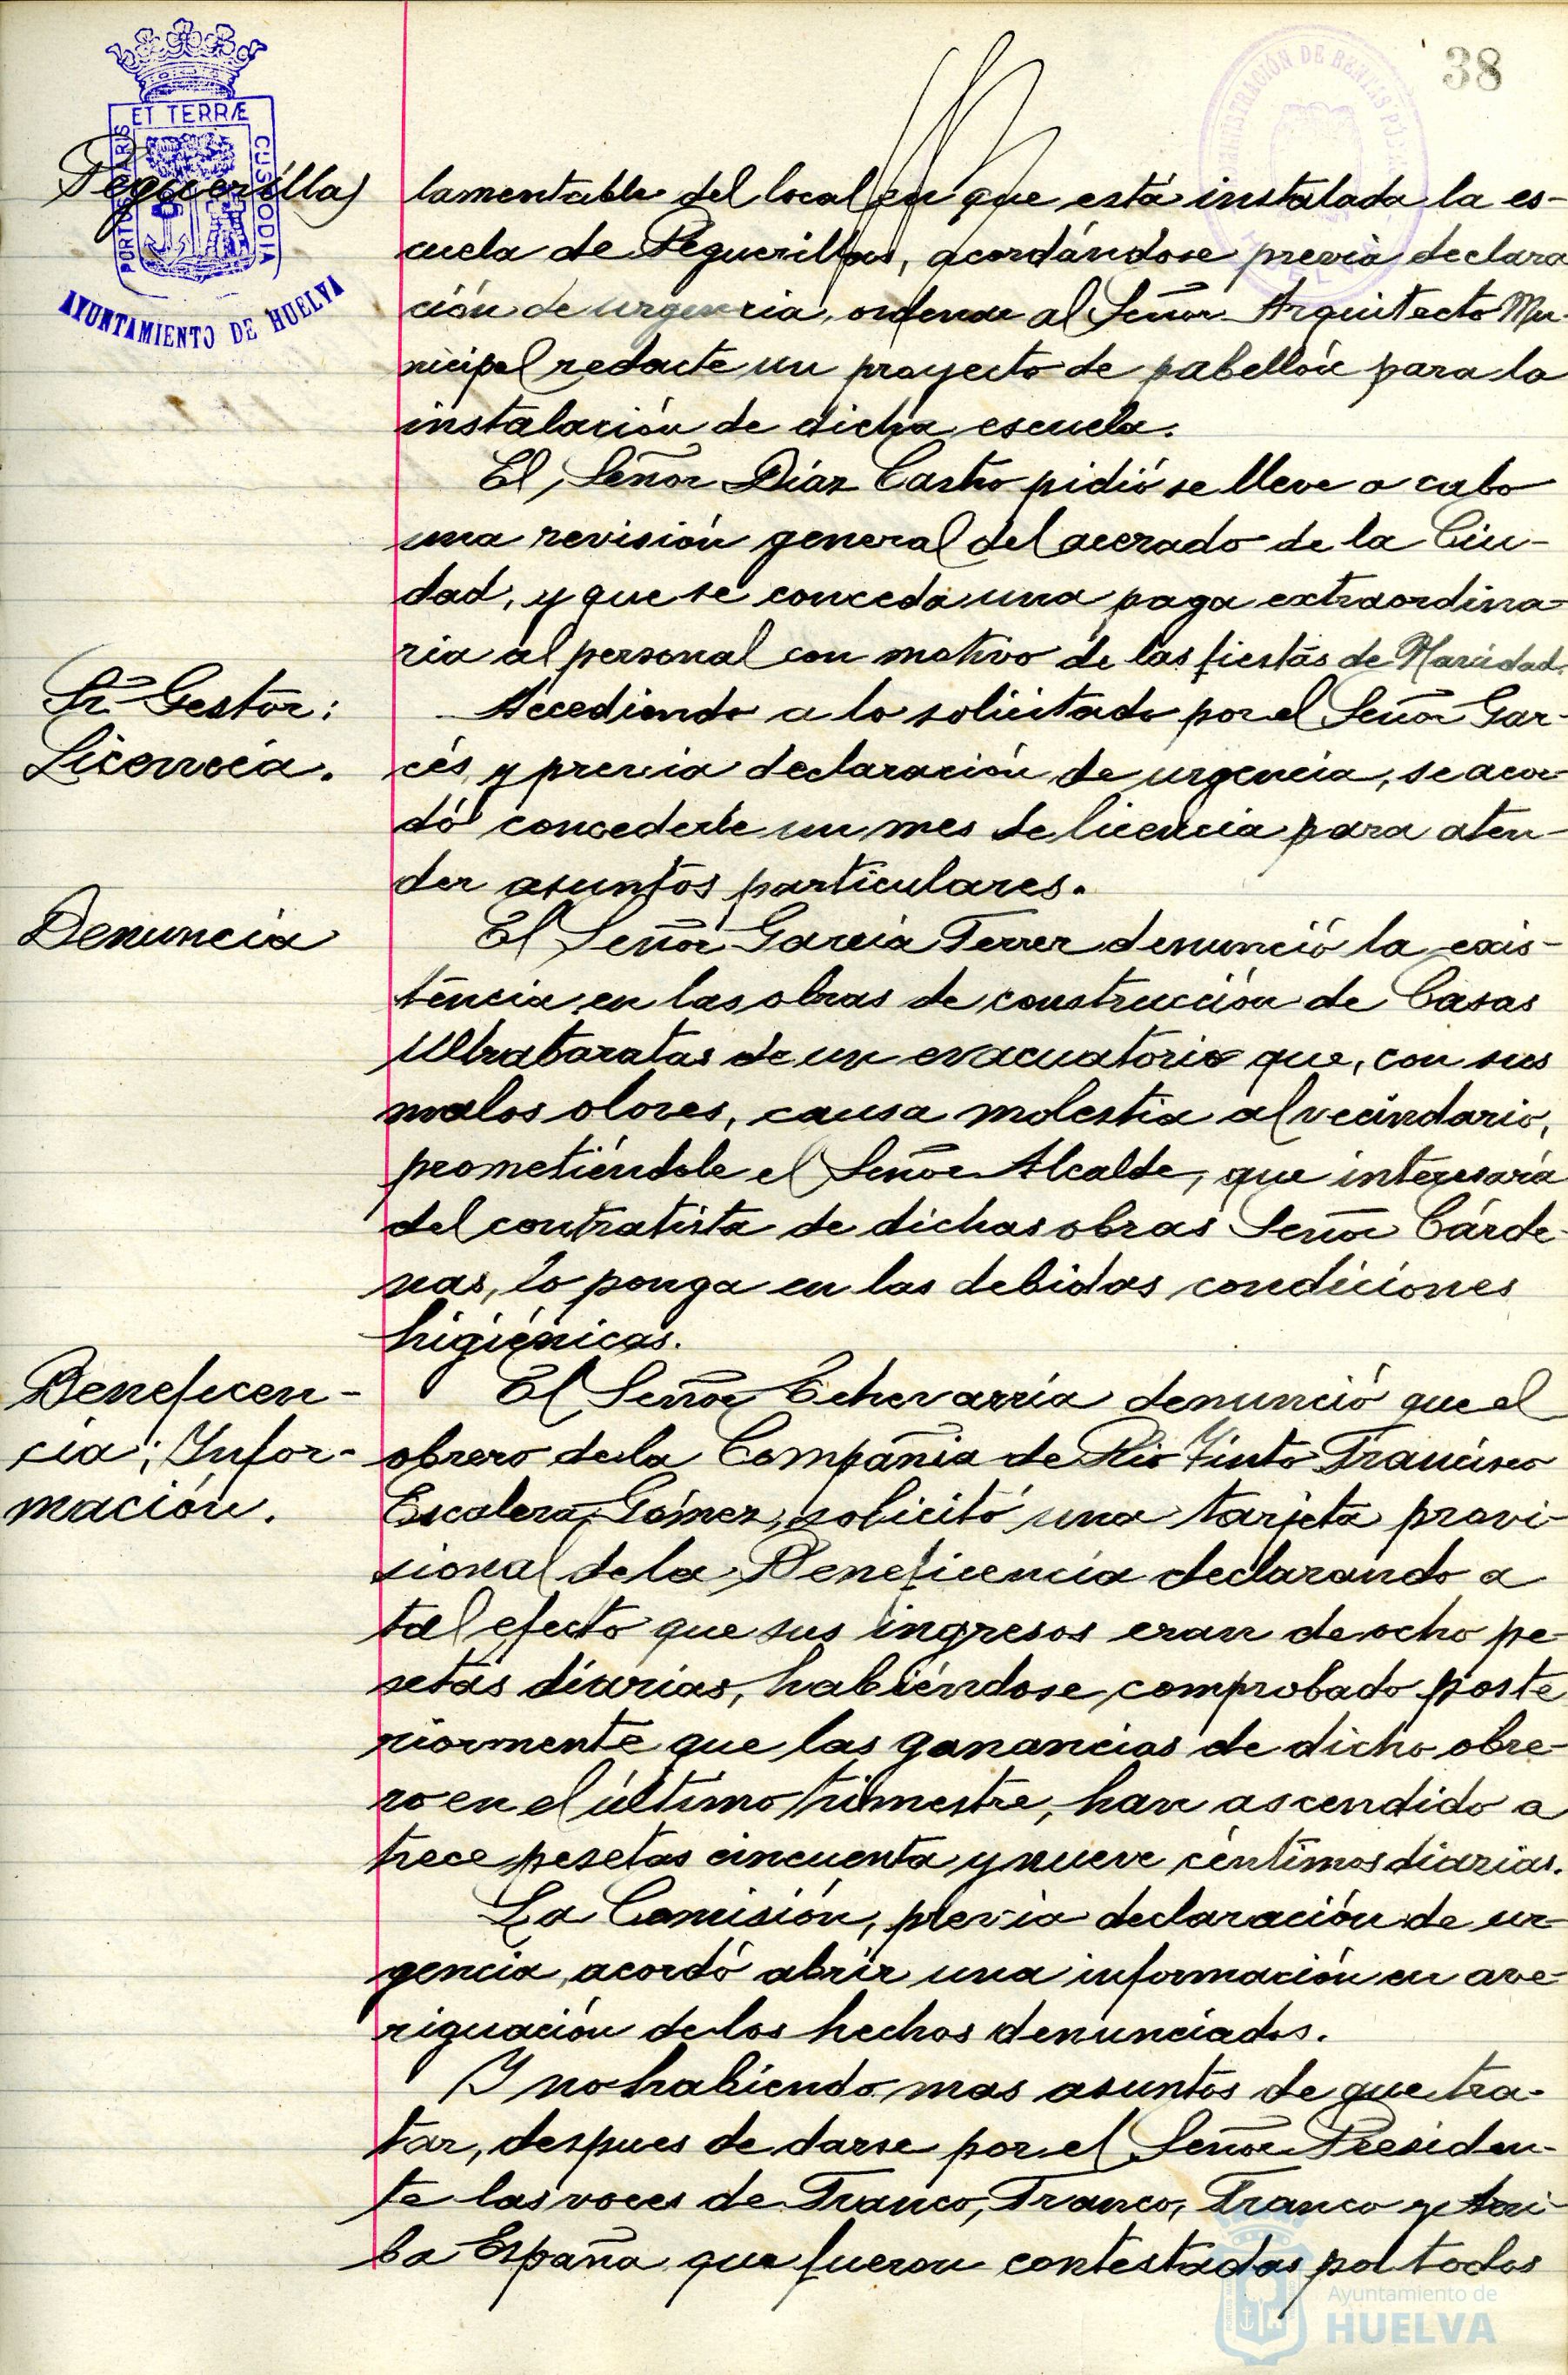 38
ET TERRÆ
PORTUS MARIS
CUSTODIA
AYUNTAMIENTO DE HUELVA
ADMINISTRACIÓN DE RENTAS PÚ
Peguerilla)
lamentable del local en que está instalada la es-
cuela de Peguerillas, acordándose previa declara
ción de urgencia, ordenar al Señor Arquitecto Mu-
nicipal redacte un proyecto de pabellón para la
instalación de dicha escuela.
El Señor Díaz Castro pidió se lleve a cabo
una revisión general del acerado de la Ciu-
dad, y que se conceda una paga extraordina-
ria al personal con motivo de las fiestas de Navidad.
Sr. Gestor:
Licencia.
Accediendo a lo solicitado por el Señor Gar-
cés, y previa declaración de urgencia, se acor-
dó concederle un mes de licencia para aten-
der asuntos particulares.
Denuncia
El Señor García Ferrer denunció la exis-
tencia en las obras de construcción de Casas
Ultrabaratas de un evacuatorio que, con sus
malos olores, causa molestia al vecindario,
prometiéndole el Señor Alcalde, que interesaría
del contratista de dichas obras Señor Cárde-
nas, lo ponga en las debidas condiciones
higiénicas.
Beneficen-
cia; Infor-
mación.
El Señor Echevarría denunció que el
obrero de la Compañía de Rio Tinto Francisco
Escalera Gómez, solicitó una tarjeta provi-
sional de la Beneficencia declarando a
tal efecto que sus ingresos eran de ocho pe-
setas diarias, habiéndose comprobado poste
riormente que las ganancias de dicho obre-
ro en el último trimestre, han ascendido a
trece pesetas cincuenta y nueve céntimos diarias.
La Comisión, previa declaración de ur-
gencia, acordó abrir una información en ave-
riguación de los hechos denunciados.
Y no habiendo mas asuntos de que tra-
tar, despues de darse por el Señor Presiden-
te las voces de Franco, Franco, Franco y Arri-
ba España que fueron contestadas por todos
Ayuntamiento de
HUELVA